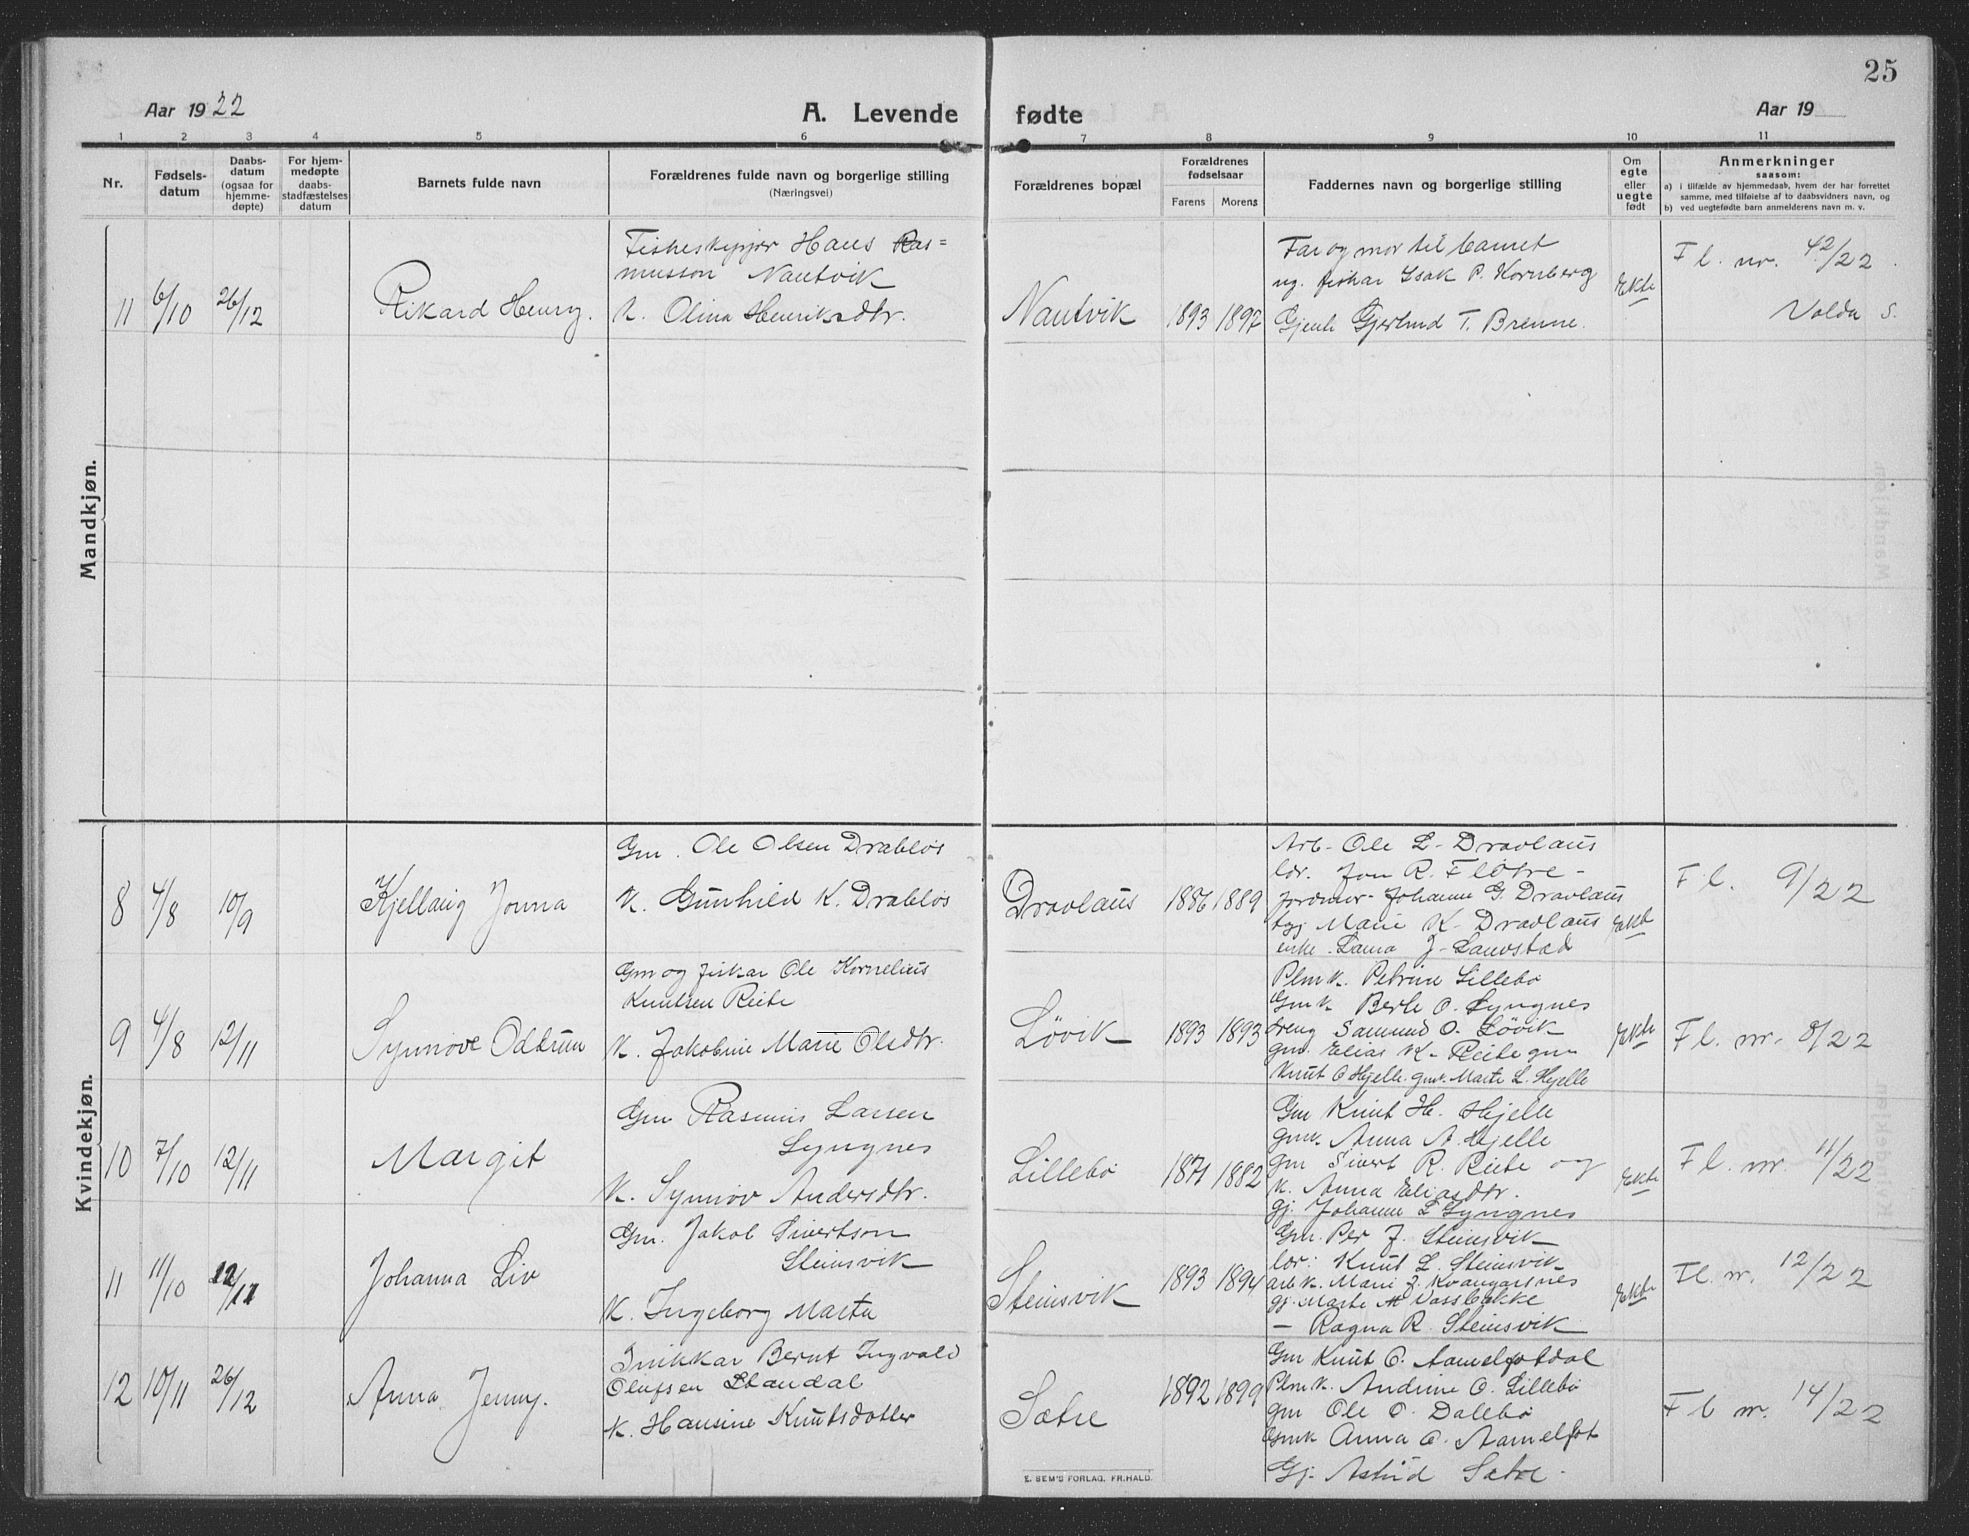 25
Aar 1922
A. Levende fødte
Aar 19
1 2 3 4 5 6 7 8 9 10 11
Nr.
Fødsels-
datum
Daabs-
datum
(ogsaa for
hjemme-
døpte)
For hjem-
medøpte
daabs-
stadfæstelses
datum
Barnets fulde navn
Forældrenes fulde navn og borgerlige stilling
(Næringsvei)
Forældrenes bopæl
Forældrenes
fødselsaar
Farens Morens
Faddernes navn og borgerlige stilling
Om
egte
eller
uegte
født
Anmerkninger
saasom:
a) i tilfælde av hjemmedaab, hvem der har forrettet
samme, med tilføielse af to daabsvidners navn, og
b) ved uegtefødte barn anmelderens navn m. v.
Mandkjøn.
11 6/10 26/12
Rikard Henry.
Fiskeskipper Hans Ras=
musson Nautvik
K. Olina Henriksdtr.
Nautvik
1893 1897
Far og mor til barnet
ug. fiskar Isak P. Kornberg
Gjente Gjertrud T. Brenne.
Ekte
Fl. nr. 42/22.
Volda S.
Kvindekjøn.
8 4/8 10/9
Kjellaug Jonna
Gm. Ole Olsen Drabløs
K. Gunhild K. Drabløs
Dravlaus
1886 1889
Arb. Ole L. Dravlaus
ldr. Jon R. Fløtre -
jordmor- Johanne G. Dravlaus
Marie K. Dravlaus
enke. Lama J. Lauvstad
Ekte
Fl. 9/22
9 4/8 12/11
Synnøve Oddrun
Gm og fiskar Ole Kornelius
Knutsen Reite
K. Jakobine Marie Olsdtr.
Løvik
1893 1893
Plmk. Petrine Lillebø
Gmk Berte O. Lyngnes
dreng Samund O. Løvik
gm. Elias K. Reite gm
Knut O Hjelle. gmk. Marte L. Hjelle
Ekte
Fl. nr. 8/22
10 7/10 12/11
Margit
Gm Rasmus Larsen
Lyngnes
K. Synnøv Andersdtr.
Lillebø
1871 1882
Gm Knut H. Hjelle
gmk. Anna A. Hjelle
gm Sivert R. Reite og
K. Anna Eliasdtr.
gj. Johanne L Lyngnes
Ekte
Fl. nr. 11/22
11 11/10 12/11
Johanna Liv
Gm. Jakob Sivertson
Steinsvik
K. Ingeborg Marta
Steinsvik
1893 1894
Gm. Per J. Steinsvik
ldr: Knut L. Steinsvik
arb k. Marie J. Kvangarsnes
gj. Marte M Vassbakke
- Ragna R. Steinsvik
Ekte
Fl. nr. 12/22
12 10/11 26/12
Anna Jenny.
Snikkar Bernt Ingvald
Olufsen Standal
K. Hansine Knutsdotter
Sætre
1892 1899
Gm Knut O. Aamelfotdal
Plmk. Andrine O. Lillebø
gm Ole O. Dalebø
Gmk Anna O. Aamelfot
Gj. Astrid Sætre.
Fl nr. 14/22
E. SEM'S FORLAG. FR.HALD.